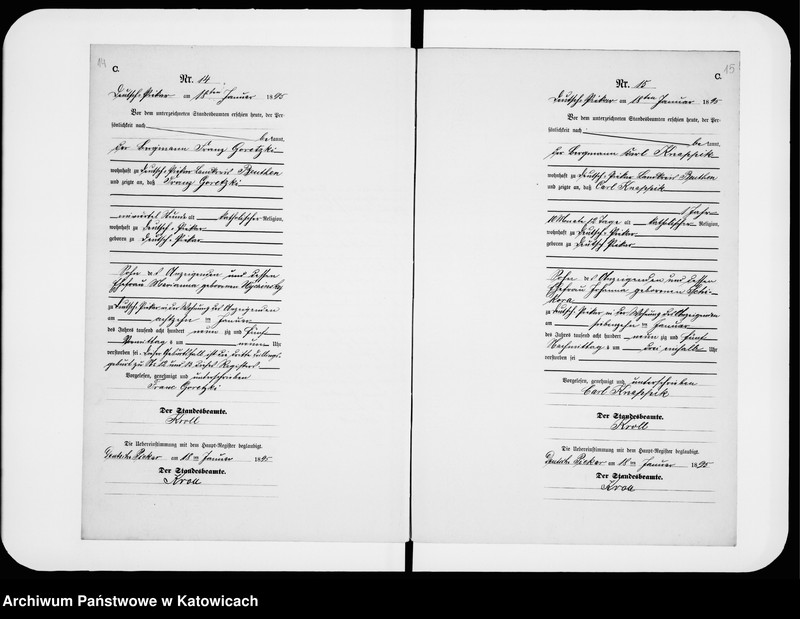 14
C.
Nr. 14
Deutsch-Piekar am 18ten Januar 1895
Vor dem unterzeichneten Standesbeamten erschien heute, der Per-
sönlichkeit nach
bekannt,
der Bergmann Franz Goretzki
wohnhaft zu Deutsch-Piekar Landkreis Beuthen
und zeigte an, daß Franz Goretzki
Stunde alt katholischer Religion,
wohnhaft zu Deutsch-Piekar
geboren zu Deutsch-Piekar
Sohn des Anzeigenden und dessen
Ehefrau Marianna geborenen
zu Deutsch-Piekar in der Wohnung des Anzeigenden
am achtzehn ten Januar
des Jahres tausend acht hundert neunzig und fünf
Vormittags um neun Uhr
verstorben sei.
geburt zu Nr. 12 und 13 dieses Registers
Vorgelesen, genehmigt und unterschrieben
Franz Goretzki
Der Standesbeamte.
Kroll
Die Uebereinstimmung mit dem Haupt-Register beglaubigt.
Deutsch-Piekar am 18ten Januar 1895
Der Standesbeamte.
Kroll
15
C.
Nr. 15
Deutsch-Piekar am 18ten Januar 1895
Vor dem unterzeichneten Standesbeamten erschien heute, der Per-
sönlichkeit nach
bekannt,
der Bergmann Carl Knappik
wohnhaft zu Deutsch-Piekar Landkreis Beuthen
und zeigte an, daß Carl Knappik
1 Jahr
10 Monate 12 Tage alt katholischer Religion,
wohnhaft zu Deutsch-Piekar
geboren zu Deutsch Piekar
Sohn des Anzeigenden und dessen
Ehefrau Johanna geborenen
zu Deutsch-Piekar, in der Wohnung des Anzeigenden
am siebzehn ten Januar
des Jahres tausend acht hundert neunzig und fünf
Nachmittags um drei einhalb Uhr
verstorben sei
Vorgelesen, genehmigt und unterschrieben
Carl Knappik
Der Standesbeamte.
Kroll
Die Uebereinstimmung mit dem Haupt-Register beglaubigt.
Deutsch-Piekar am 18ten Januar 1895
Der Standesbeamte.
Kroll
Archiwum Państwowe w Katowicach